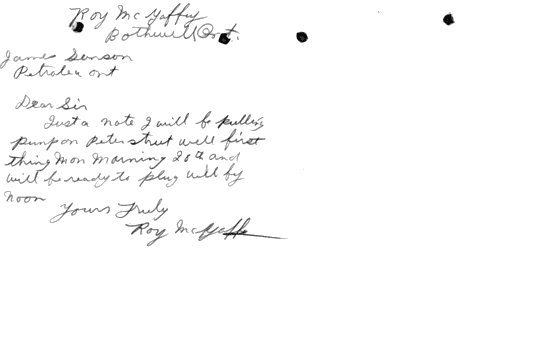 Roy McGaffey
Bothwell Ont.
James Senson
Petrolea ont
Dear Sir
Just a note I will be pulling
pump on Peter street well first
thing Mon Morning 20th and
will be ready to plug well by
noon
Yours Truly
Roy McGaffey